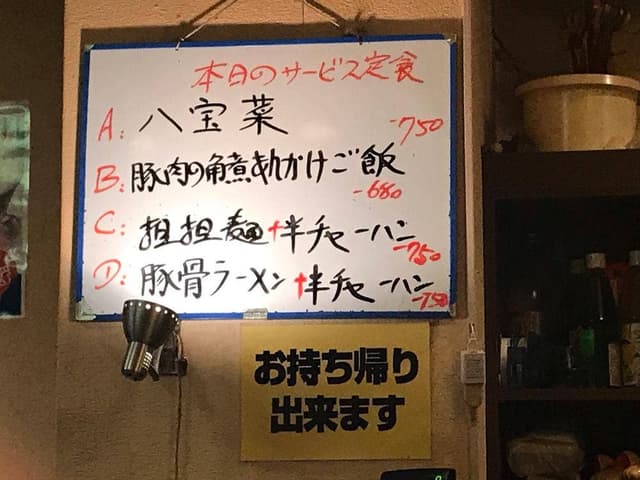 本日のサービス定食
A: 八宝菜 -750
B: 豚肉の角煮あんかけご飯
-680
C: 担担麺+半チャーハン -750
D: 豚骨ラーメン+半チャーハン -750
お持ち帰り
出来ます